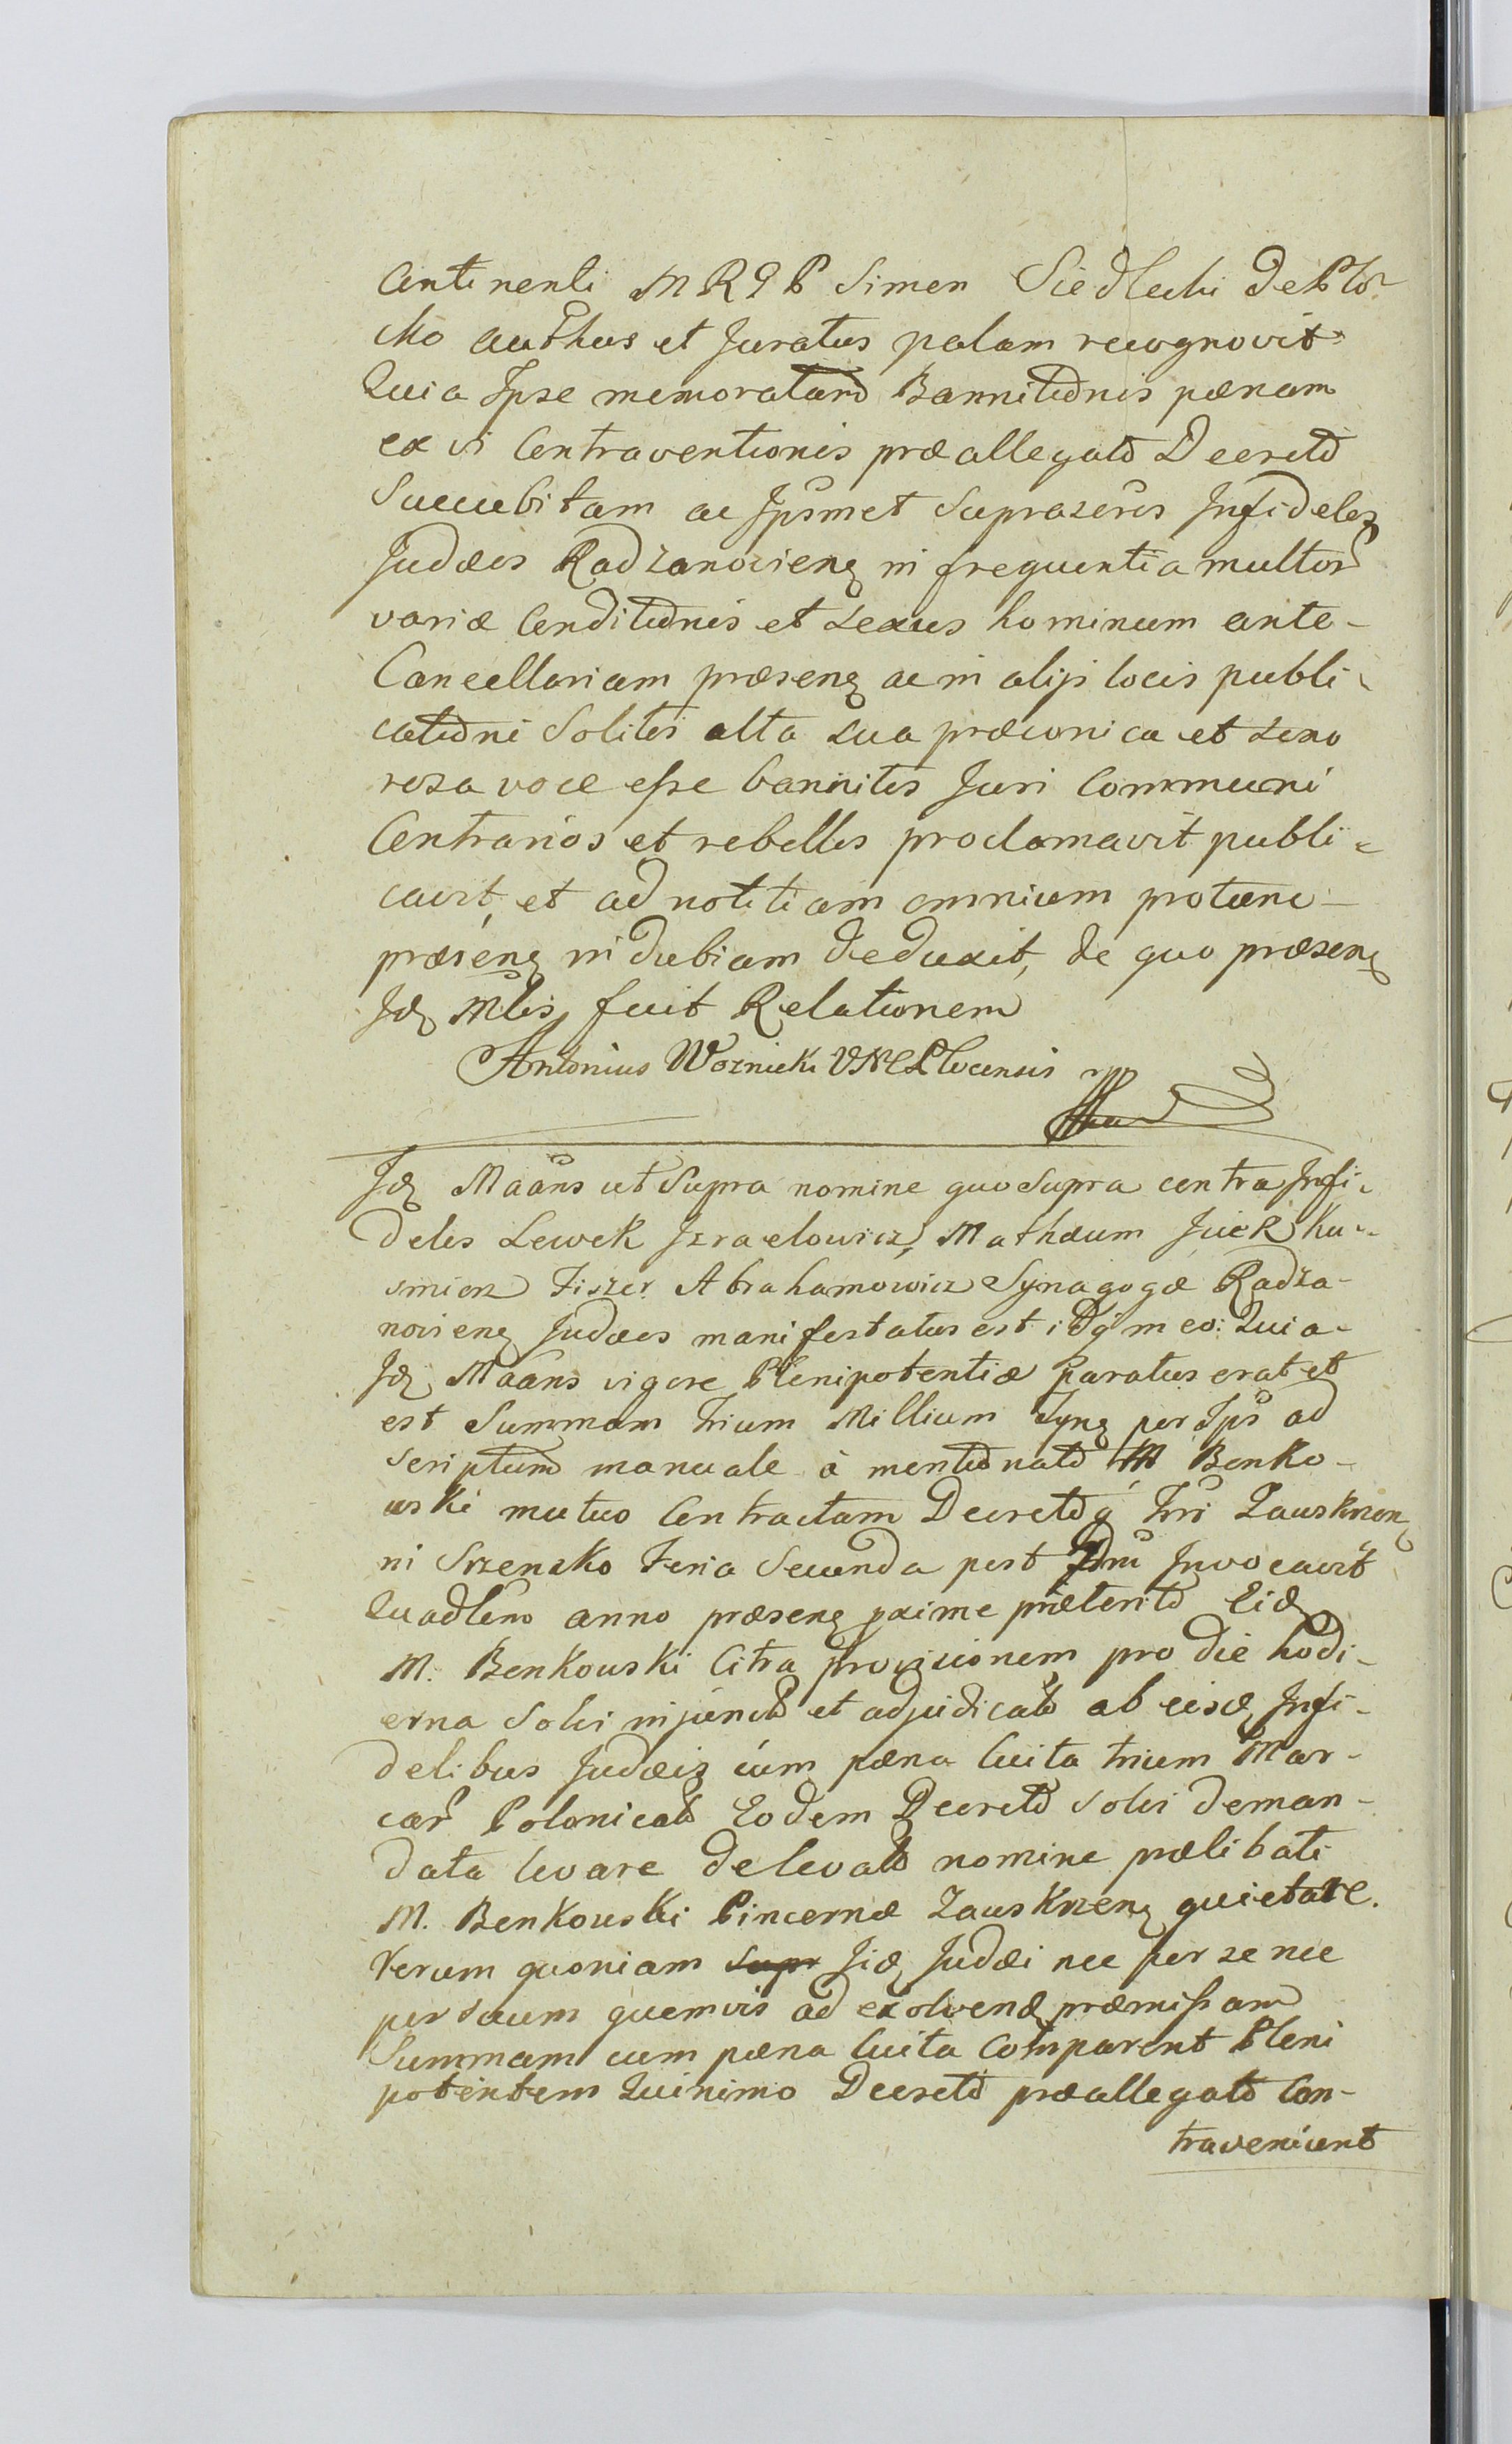 Continenti MRGP Simon Siedlecki de Plo-
cko authus et Juratus palam recognovit
Quia Ipse memoratam Bannitionis pœnam
ex vi Contraventionis præallegato Decreto
Succubitam ac Ipsmet Suprascris Infideles
Judæos Radzanovien in frequentia multor
variæ Conditionis et sexus hominum ante-
Cancellariam præsen ac in alijs locis publi-
cationi Solitis alta sua præconica et sono
rosa voce esse bannitos Juri Communi
Contrarios et rebelles proclamavit publi-
cavit, et ad notitiam omnium protunc
præsen indubiam deduxit, de quo præsen
Id Mlis fecit Relationem
Antonius Woznicki VNC Plocensis mpp
Id Maans ut Supra nomine quo Supra contra Infi-
deles Lewek Izraelowicz, Mathæum Juck Ku-
smierz Fiszer Abrahamowicz Synagogæ Radza-
novien Judæos manifestatus est idq in eo: Quia
Id Maans vigore Plenipotentiæ Paratus erat et
est Summam Trium Millium Tyn per Ips ad
scriptum manuale à mentionato M Benko-
wski mutuo Contractam Decreto Zauskrzen
in Srzensko Feria Secunda post Invocavit
Quadlem anno præsen pxime præterito Eid
M. Benkowski Citra provisionem pro die hodi-
erna Solvi injuncto et adjudicato ab eisd Infi-
delibus Judæis cum pœna luita trium Mar-
car Polonicalo Eodem Decreto Solvi deman-
data levare delevato nomine prælibati
M. Benkowski Pincernæ Zauskrzen quietare.
Verum quoniam Supr Iid Judæi nec per se nec
per suum quemvis ad exolvend præmissam
Summam cum pœna luita Comparent Pleni
potentem Quinimo Decreto præallegato Con-
traveniunt